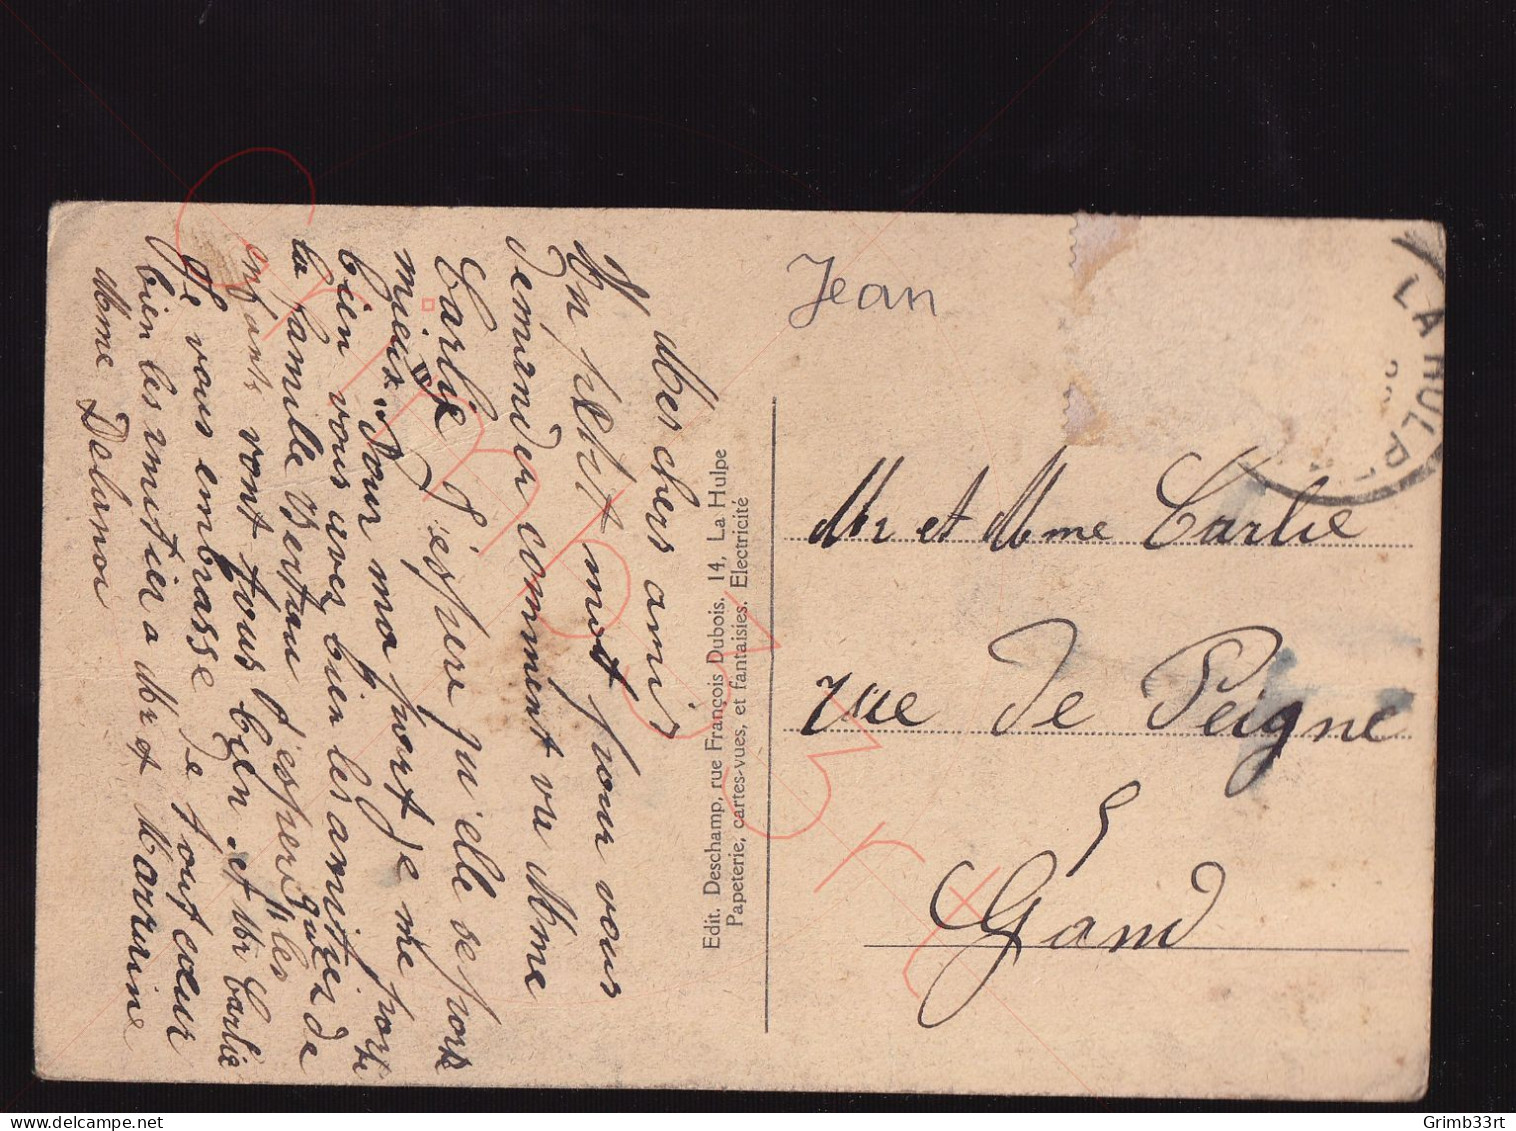 Mes chers amis
Un petit mot pour vous
demander comment va Mme
Carlie J'espere qu'elle se porte
mieux. Pour ma part je me porte
bien vous avez bien les amitiés de
la famille Bertau d'espere que les
enfants vont tous bien. et Mr Carlie
Je vous embrasse de tout cœur
bien les amitier a Mr et Marrine
Mme Delunoi
Edit. Deschamp, rue François Dubois, 14, La Hulpe
Papeterie, cartes-vues, et fantaisies. Electricité
Jean
LA HULPE
Mr et Mme Carlie
rue de Peigne
5
Gand
Grimb33rt
Grimb33rt